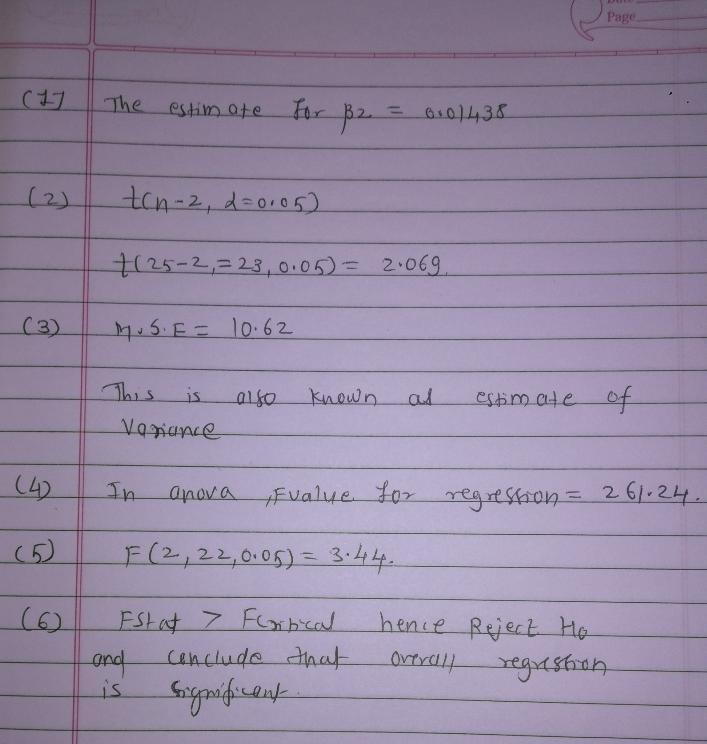 Page
(1) The estimate for β2 = 0.01438
(2) t(n-2, α=0.05)
t(25-2,=23, 0.05) = 2.069
(3) M.S.E = 10.62
This is also known as estimate of
Variance
(4) In anova ,Fvalue for regression = 261.24.
(5) F(2,22,0.05) = 3.44.
(6) FStat > Fcritical hence Reject Ho
and Conclude that overall regression
is significant.